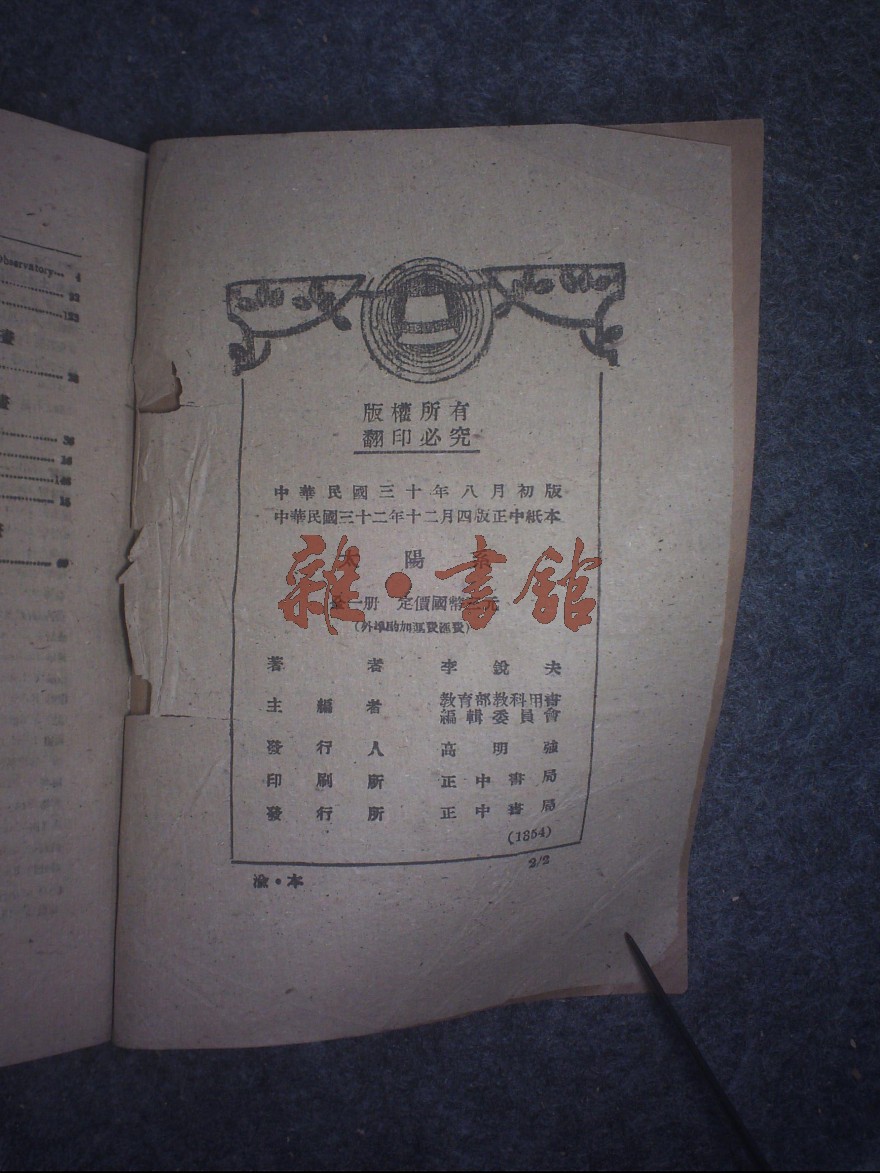 Observatory 4
22
123
畫
22
畫
36
16
146
15
畫
69
版權所有
翻印必究
中華民國三十年八月初版
中華民國三十二年十二月四版正中紙本
太陽系
全一册 定價國幣 元
(外埠酌加運費匯費)
雜·書舘
著者 李銳夫
主編者 教育部教科用書
編輯委員會
發行人 高明強
印刷所 正中書局
發行所 正中書局
(1854)
2/2
渝·本